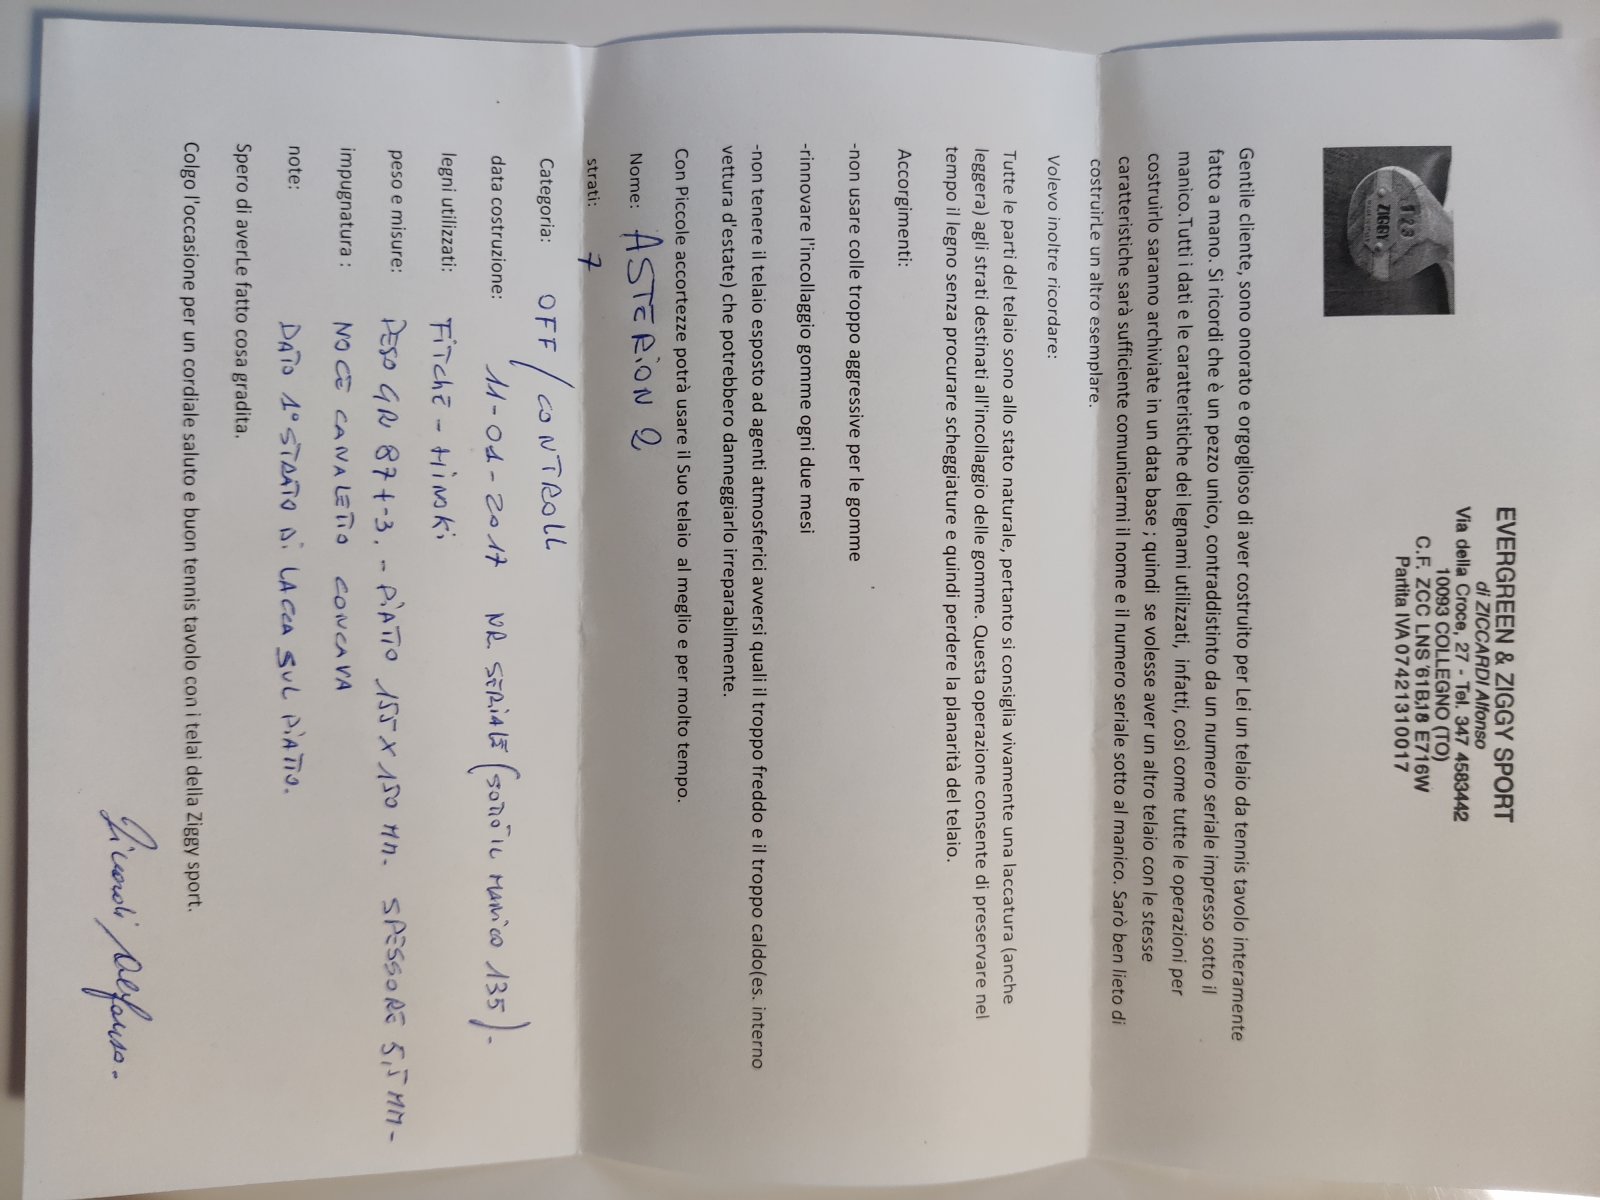 123
ZIGGY
EVERGREEN & ZIGGY SPORT
di ZICCARDI Alfonso
Via della Croce, 27 - Tel. 347 4583442
10093 COLLEGNO (TO)
C.F. ZCC LNS 61B18 E716W
Partita IVA 07421310017
Gentile cliente, sono onorato e orgoglioso di aver costruito per Lei un telaio da tennis tavolo interamente
fatto a mano. Si ricordi che è un pezzo unico, contraddistinto da un numero seriale impresso sotto il
manico.Tutti i dati e le caratteristiche dei legnami utilizzati, infatti, così come tutte le operazioni per
costruirlo saranno archiviate in un data base ; quindi se volesse aver un altro telaio con le stesse
caratteristiche sarà sufficiente comunicarmi il nome e il numero seriale sotto al manico. Sarò ben lieto di
costruirLe un altro esemplare.
Volevo inoltre ricordare:
Tutte le parti del telaio sono allo stato naturale, pertanto si consiglia vivamente una laccatura (anche
leggera) agli strati destinati all'incollaggio delle gomme. Questa operazione consente di preservare nel
tempo il legno senza procurare scheggiature e quindi perdere la planarità del telaio.
Accorgimenti:
-non usare colle troppo aggressive per le gomme
-rinnovare l'incollaggio gomme ogni due mesi
-non tenere il telaio esposto ad agenti atmosferici avversi quali il troppo freddo e il troppo caldo(es. interno
vettura d'estate) che potrebbero danneggiarlo irreparabilmente.
Con Piccole accortezze potrà usare il Suo telaio al meglio e per molto tempo.
Nome: ASTERION 2
strati: 7
Categoria: OFF/CONTROLL
data costruzione: 11-01-2017 NR. SERIALE (SOTTO IL MANICO 135).
legni utilizzati: FITCHE - HINOKI
peso e misure: PESO GR 87+-3. - PIATTO 155 X 150 MM. SPESSORE 5,5 MM-
impugnatura : NOCE CANALETTO CONCAVA
note: DATO 1° STRATO DI LACCA SUL PIATTO.
Spero di averLe fatto cosa gradita.
Colgo l'occasione per un cordiale saluto e buon tennis tavolo con i telai della Ziggy sport.
Ziccardi Alfonso.